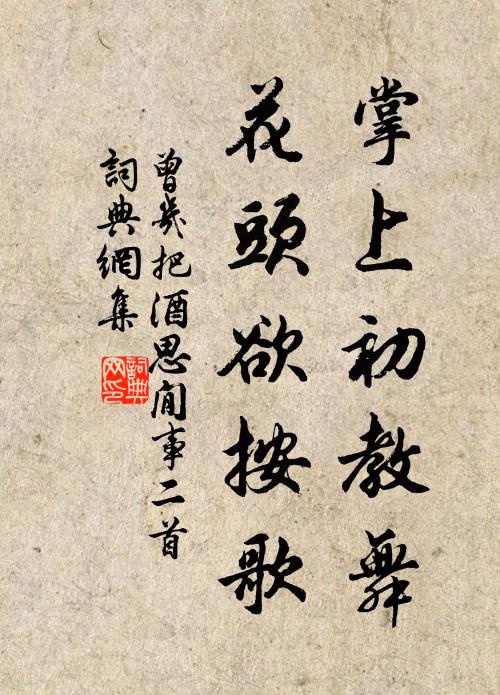 掌上初教舞
花頭欲按歌
曾幾把酒思閒事二首
詞典網集
詞典
网印